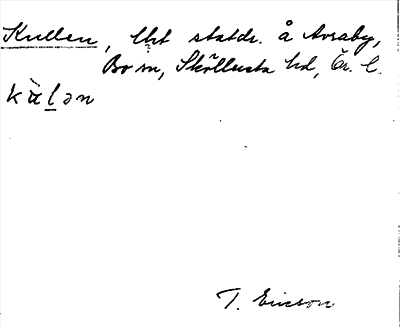 Kullen, lht statdr. å Avraby,
Bo sn, Sköllersta hd, Ör. l.
kùlən
T. Ericson